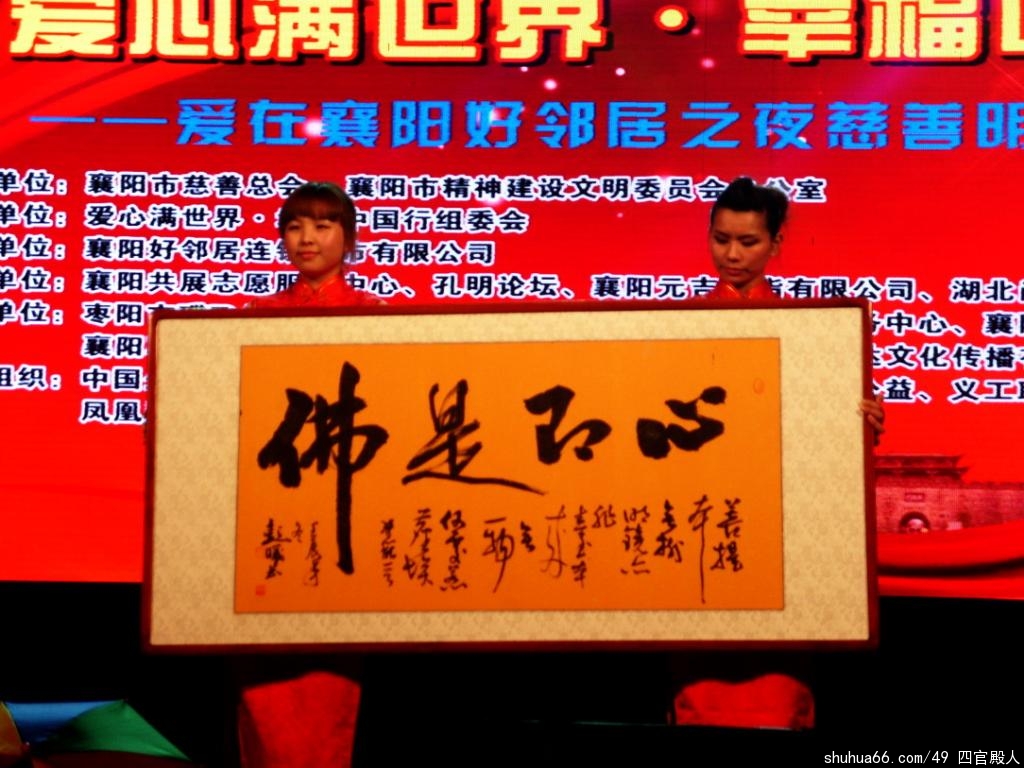 爱心满世界·幸福
——爱在襄阳好邻居之夜慈善
单位：襄阳市慈善总会 襄阳市精神建设文明委员会 公室
单位：爱心满世界· 中国行组委会
单位：襄阳好邻居连 有限公司
单位：襄阳共展志愿服 中心、孔明论坛、襄阳元吉 有限公司、湖北
单位：枣阳市 中心、襄
襄阳 文化传播
组织：中国 公益、义工
凤凰
心即是佛
菩提
本
无树
明镜亦
非
台本
来
无
一物
何处惹
尘埃
shuhua66.com/49 四官殿人